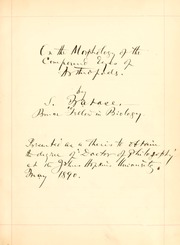 On the Morphology of the
Compound Eyes of
Arthropods.
by
S. Watase.
Bruce Fellow in Biology
Presented as a thesis to obtain
the degree of Doctor of Philosophy
at the Johns Hopkins University,
May 1890.